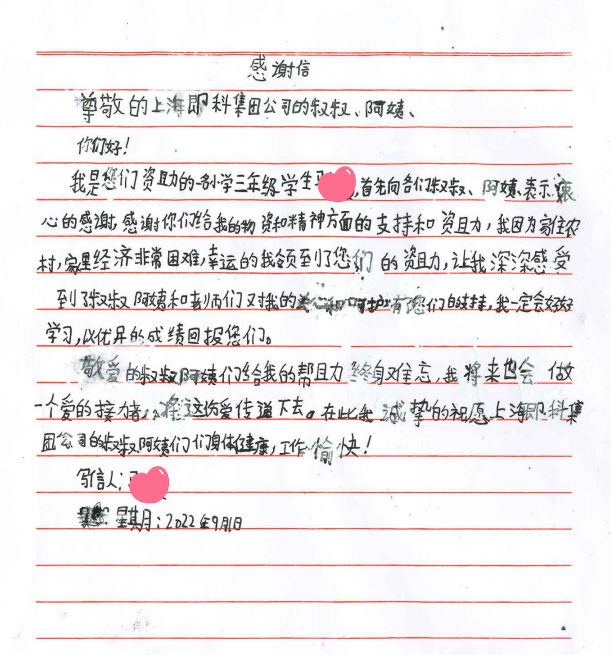 感谢信
尊敬的上海即科集团公司的叔叔、阿姨、
你们好!
我是您们资助的一名小学三年级学生 ,首先向各们叔叔、阿姨、表示衷
心的感谢,感谢你们给我的物资和精神方面的支持和资助,我因为家住农
村,家里经济非常困难,幸运的我领到了您们的资助,让我深深感受
到了叔叔阿姨和老师们对我的关心和呵护有您们的支持,我一定会好好
学习,以优异的成绩回报您们。
敬爱的叔叔阿姨们给我的帮助终身难忘,我将来也会做
一个爱的接力者,将这份爱传递下去。在此我诚挚的祝愿上海即科集
团公司的叔叔阿姨们们身体健康,工作愉快!
写信人:
星期月:2022年9月1日